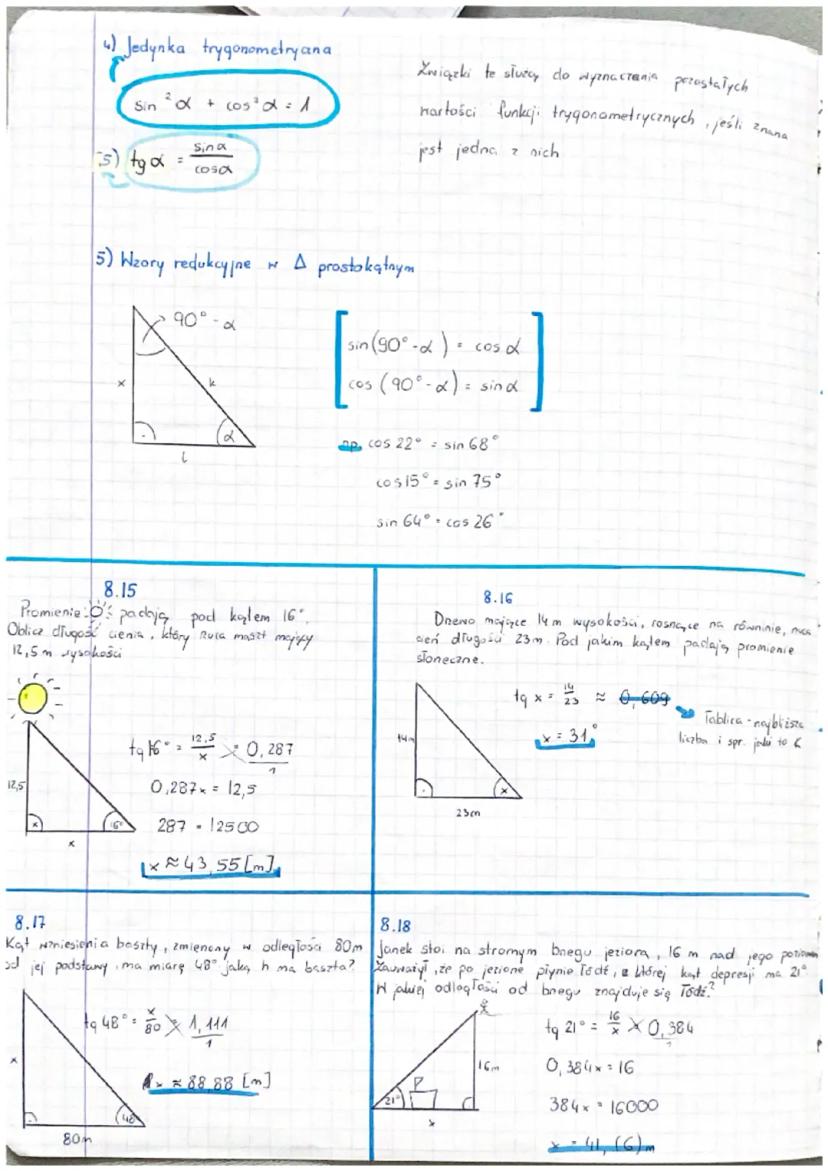 4) Jedynka trygonometryczna
sin²α + cos²α = 1
5) tg α = sin α / cos α
Związki te służą do wyznaczania pozostałych
wartości funkcji trygonometrycznych, jeśli znana
jest jedna z nich
5) Wzory redukcyjne w Δ prostokątnym
90° - α
x
k
α
l
sin (90° - α) = cos α
cos (90° - α) = sin α
np. cos 22° = sin 68°
cos 15° = sin 75°
sin 64° = cos 26°
8.15
Promienie padają pod kątem 16°.
Oblicz długość cienia, który rzuca maszt mający
12,5 m wysokości
12,5
x
16°
x
tg 16° = 12,5/x = 0,287/1
0,287x = 12,5
287 = 12500
x ≈ 43,55 [m]
8.16
Drzewo mające 14 m wysokości, rosnące na równinie, rzuca
cień długości 23m. Pod jakim kątem padają promienie
słoneczne.
14m
x
23m
tg x = 14/23 ≈ 0,609
x = 31°
Tablica - najbliższa
liczba i spr. jaki to
8.17
Kąt wzniesienia baszty, zmierzony w odległości 80m
od jej podstawy, ma miarę 48° jaką h ma baszta?
x
48°
80m
tg 48° = x/80 1,111/1
x ≈ 88,88 [m]
8.18
Janek stoi na stromym brzegu jeziora, 16 m nad jego poziom
Zauważył, że po jeziorze płynie łódź, której kąt depresji ma 21°
W jakiej odległości od brzegu znajduje się łódź?
21°
16m
x
tg 21° = 16/x 0,384/1
0,384x = 16
384x = 16000
x = 41,(6) m